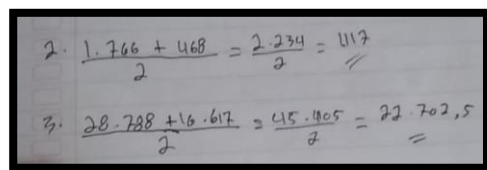 2. 1.766 + 468 / 2 = 2.234 / 2 = 1117
3. 28.788 + 16.617 / 2 = 45.405 / 2 = 22.702,5